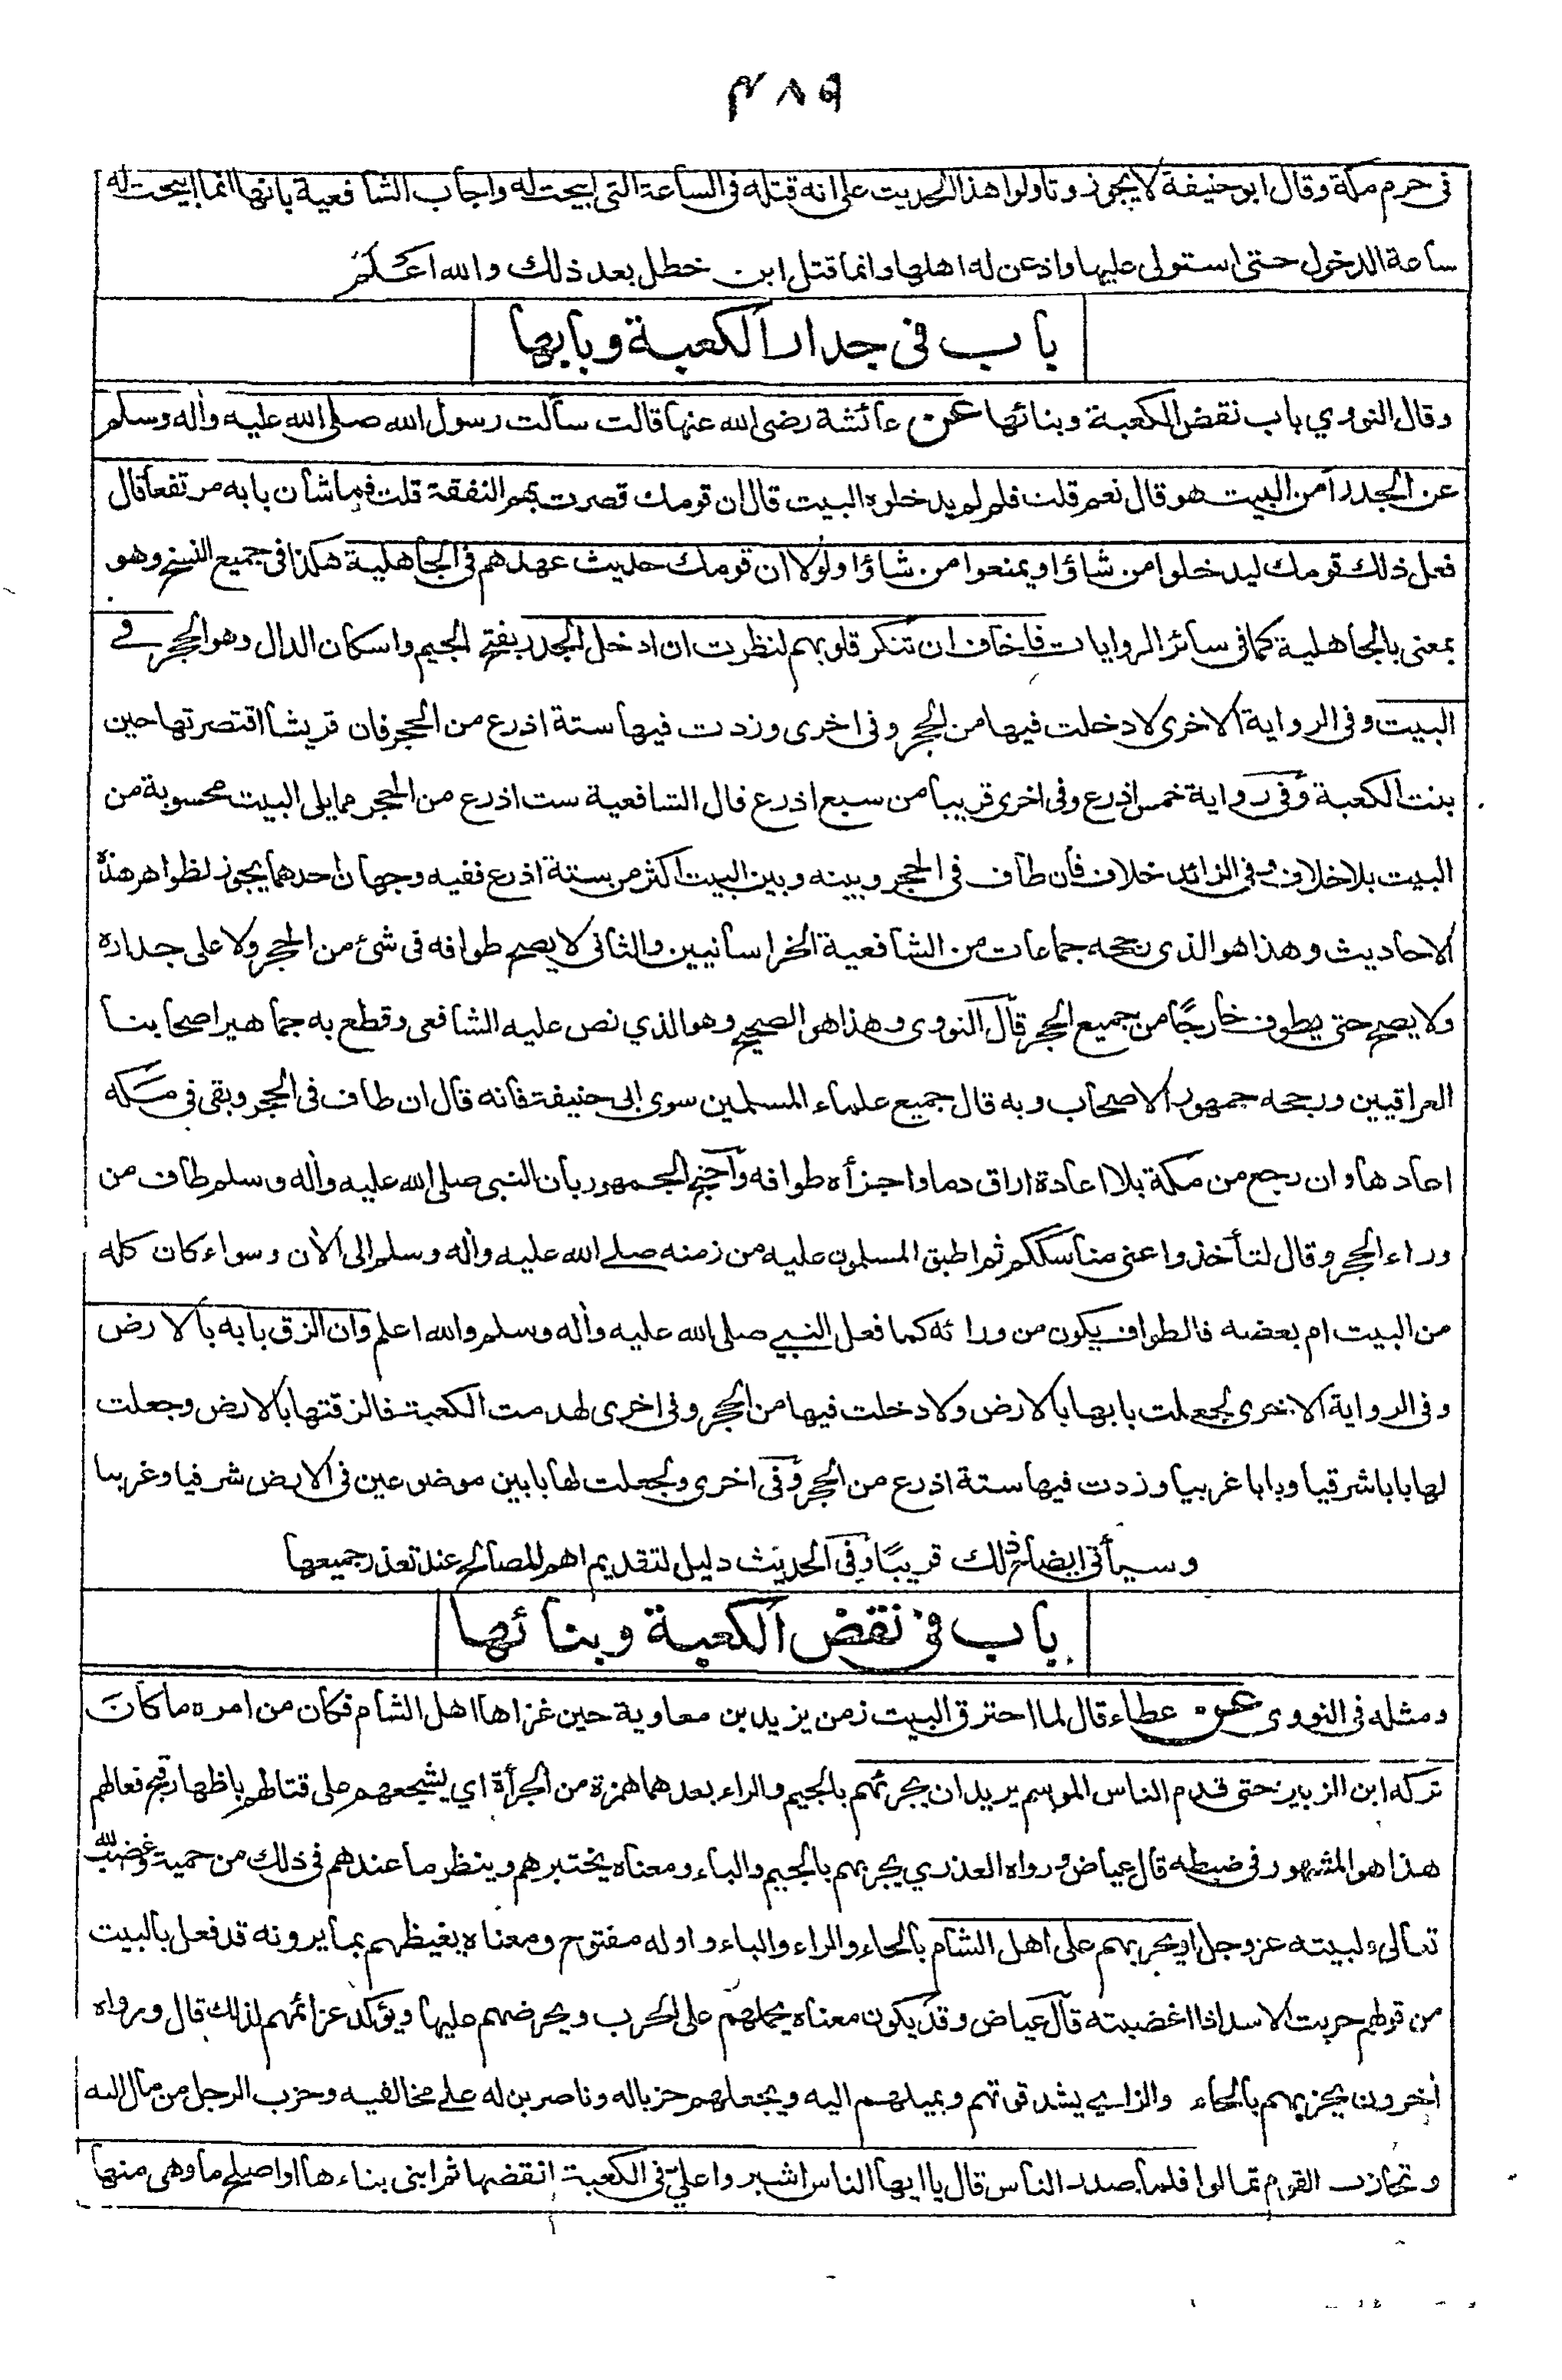 ٤٨٩
في حرم مكة وقال ابو حنيفة لا يجوز وتاولوا هذا الحديث على انه قتله في الساعة التي ابيحت له واجاب الشافعية بانها انما ابيحت له
ساعة الدخول حتى استولى عليها واذعن له اهلها وانما قتل ابن خطل بعد ذلك والله اعلم
باب في جدار الكعبة وبابها
وقال النووي باب نقض الكعبة وبنائها عن عائشة رضي الله عنها قالت سألت رسول الله صلى الله عليه واٰله وسلم
عن الجدر أمن البيت هو قال نعم قلت فلم لم يدخلوه البيت قال ان قومك قصرت بهم النفقة قلت فما شان بابه مرتفعا قال
فعل ذلك قومك ليدخلوا من شاؤا ويمنعوا من شاؤا ولولا ان قومك حديث عهدهم في الجاهلية هكذا في جميع النسخ وهو
بمعنى بالجاهلية كما في سائر الروايات فاخاف ان تنكر قلوبهم لنظرت ان ادخل الجدر بفتح الجيم واسكان الدال وهو الحجر في
البيت وفي الرواية الاخرى لادخلت فيها من الحجر وفي اخرى وزدت فيها ستة اذرع من الحجر فان قريشا اقتصرتها حين
بنت الكعبة وفي رواية خمس اذرع وفي اخرى قريبا من سبع اذرع قال الشافعية ست اذرع من الحجر مما يلي البيت محسوبة من
البيت بلا خلاف وفي الزائد خلاف فان طاف في الحجر وبينه وبين البيت اكثر من ستة اذرع ففيه وجهان احدهما يجوز لظواهر هذه
الاحاديث وهذا هو الذي رجحه جماعات من الشافعية الخراسانيين والثاني لا يصح طوافه في شئ من الحجر ولا على جداره
ولا يصح حتى يطوف خارجًا من جميع الحجر قال النووي وهذا هو الصحيح وهو الذي نص عليه الشافعي وقطع به جماهير اصحابنا
العراقيين ورجحه جمهور الاصحاب وبه قال جميع علماء المسلمين سوى ابي حنيفة فانه قال ان طاف في الحجر وبقي في مكه
اعادها وان رجع من مكة بلا اعادة اراق دما واجزأه طوافه واحتج الجمهور بان النبي صلى الله عليه واٰله وسلم طاف من
وراء الحجر وقال لتأخذوا عني مناسككم ثم اطبق المسلمون عليه من زمنه صلے الله عليه واٰله وسلم الى الاٰن وسواء كان كله
من البيت ام بعضه فالطواف يكون من ورائه كما فعل النبي صلى الله عليه واٰله وسلم والله اعلم وان الزق بابه بالارض
وفي الرواية الاخرى لجعلت بابها بالارض ولادخلت فيها من الحجر وفي اخرى لهدمت الكعبة فالزقتها بالارض وجعلت
لها بابا شرقيا وبابا غربيا وزدت فيها ستة اذرع من الحجر وفي اخرى ولجعلت لها بابين موضوعين في الارض شرقيا وغربيا
وسيأتي ايضا ذلك قريبًا وفي الحديث دليل لتقديم اهم المصالح عند تعذر جميعها
باب في نقض الكعبة وبنائها
ومثله في النووي عن عطاء قال لما احترق البيت زمن يزيد بن معاوية حين غزاها اهل الشام فكان من امره ما كان
تركه ابن الزبير حتى قدم الناس الموسم يريد ان يجرئهم بالجيم والراء بعدهما همزة من الجرأة اي يشجعهم على قتالهم باظهار قبح فعالهم
هذا هو المشهور في ضبطه قال عياض ورواه العذري يجربهم بالجيم والباء ومعناه يختبرهم وينظر ما عندهم في ذلك من حمية وغضب لله
تعالى ولبيته عز وجل او يحربهم على اهل الشام بالحاء والراء والباء واوله مفتوح ومعناه يغيظهم بما يرونه قد فعل بالبيت
من قولهم حربت الاسد اذا اغضبته قال عياض وقد يكون معناه يحملهم على الحرب ويحرضهم عليها ويؤكد عزائمهم لذلك قال ورواه
اٰخرون يحزبهم بالحاء والزاي يشد قوتهم ويميلهم اليه ويجعلهم حزبا له وناصرين له على مخالفيه وحزب الرجل من مال اليه
وتحازب القوم تمالوا فلما صدر الناس قال يا ايها الناس اشيروا علي في الكعبة انقضها ثم ابني بناءها او اصلح ما وهى منها